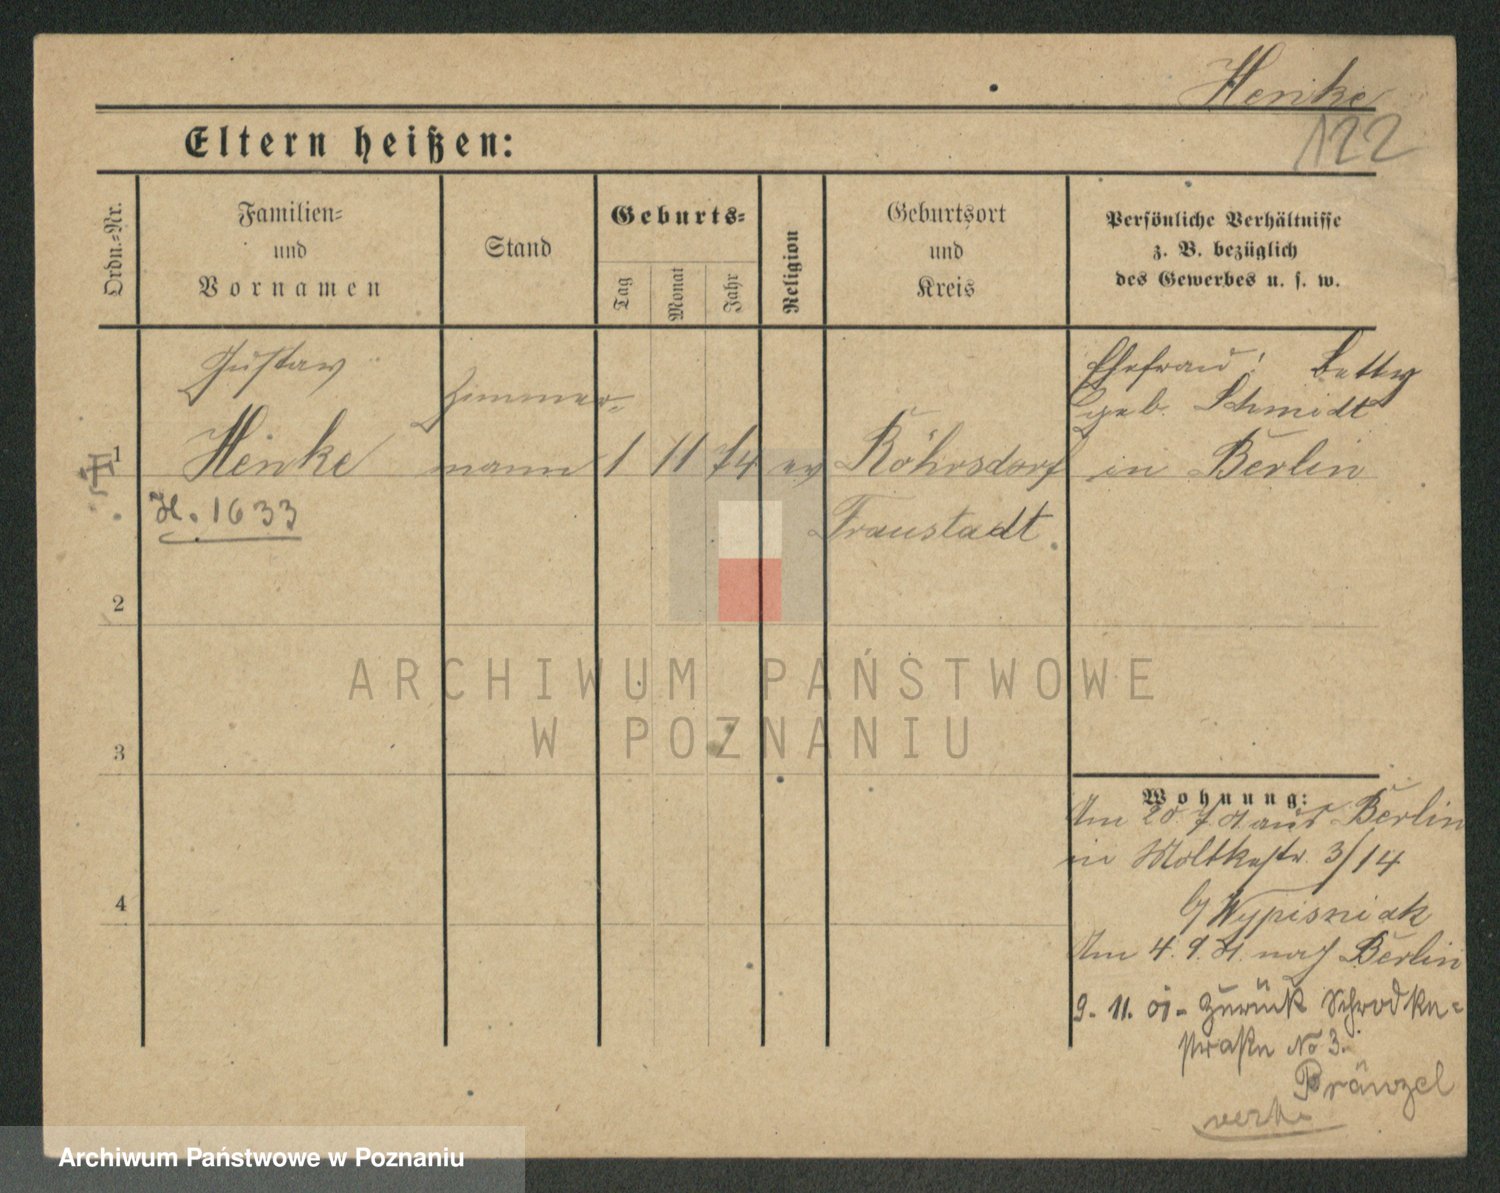 Henke
122
Eltern heißen:
Ordn.-Nr.
Familien-
und
Vornamen
Stand
Geburts-
Tag
Monat
Jahr
Religion
Geburtsort
und
Kreis
Persönliche Verhältnisse
z. B. bezüglich
des Gewerbes u. s. w.
1
Gustav
Henke
H. 1633
Zimmer-
mann
1 11 74 ev
Röhrsdorf
Fraustadt
Ehefrau: Betty
geb. Schmidt
in Berlin
2
3
4
Wohnung:
Am 20.7.01 aus Berlin
in Moltkestr. 3/14
b/ Wypisniak
Am 4.9.01. nach Berlin
9. 11. 01 - Zurück Schrodka-
straße No 3.
ARCHIWUM PAŃSTWOWE
W POZNANIU
Archiwum Państwowe w Poznaniu